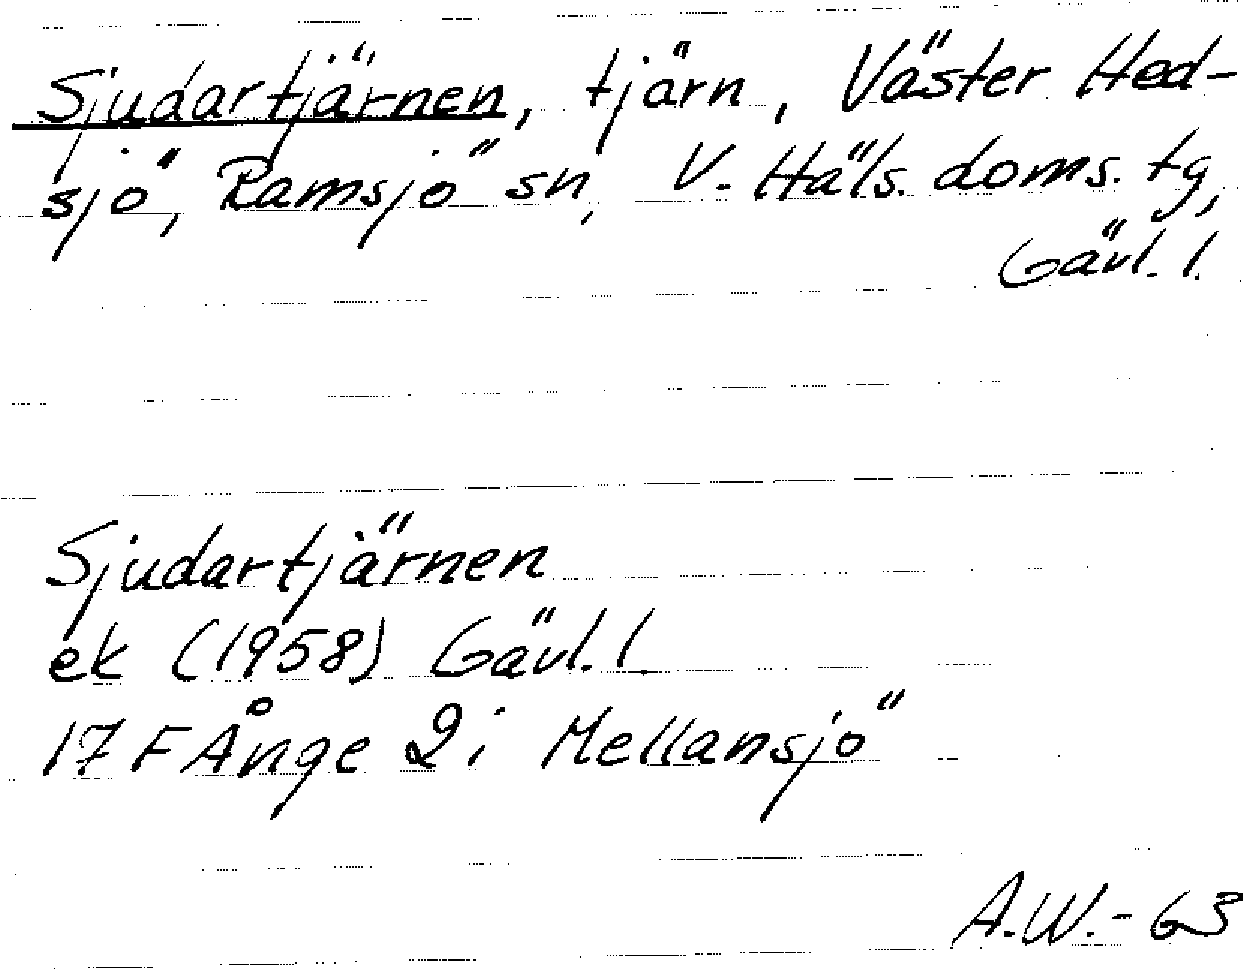 Sjudartjärnen, tjärn, Väster Hed-
sjö, Ramsjö sn, V. Häls. doms. tg,
Gävl. l.
Sjudartjärnen
ek (1958) Gävl. l.
17 F Ånge 2 i Mellansjö
A.W.-63